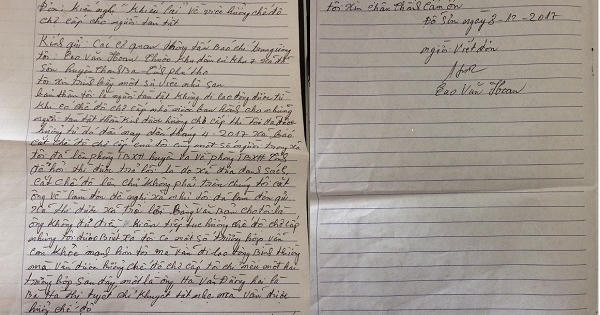 Đơn: kiến nghị khiếu lại về việc hưởng chế độ
chợ cấp cho người tàn tật
Kính gửi: Các cơ quan thông tấn Báo chí trung ương
tôi: Cao Văn Hoan thuộc khu dân cư khu 7 xã Đỗ
Sơn huyện Thanh Ba tỉnh phú thọ
tôi xin trình bày một sự việc như sau
bản thân tôi là người tàn tật không đi lao động được từ
khi có chế độ chợ cấp nhà nước ban hành cho những
người tàn tật thì tôi được hưởng chợ cấp
hưởng từ đó đến nay đến tháng 4-2017 xã báo
cắt chế độ chợ cấp của tôi cùng một số người trong xã
tôi đã lên phòng TBXH huyện và về phòng TBXH tỉnh
để hỏi thì được trả lời là do xã đưa danh sách
cắt chế độ lên chứ không phải trên chúng tôi cắt
ông về làm đơn đề nghị xã nhé tôi đã làm đơn gửi
xã thì được xã trả lời bằng văn bản cho tôi là
ông không đủ điều kiện tiếp tục hưởng chế độ chợ cấp
nhưng tôi được biết xã tôi có một số trường hợp vẫn
còn khỏe mạnh hơn tôi mà vẫn đi lao động bình thường
mà vẫn được hưởng chế độ chợ cấp tôi chỉ nêu một hai
trường hợp sau đây một là ông Hà Văn Đăng hai là
Bà Hà thị tuyết chỉ khuyết tật nhẹ mà vẫn được
hưởng chế độ
tôi xin chân thành cảm ơn
Đỗ Sơn ngày 3-12-2017
người viết đơn
Hoan
Cao Văn Hoan